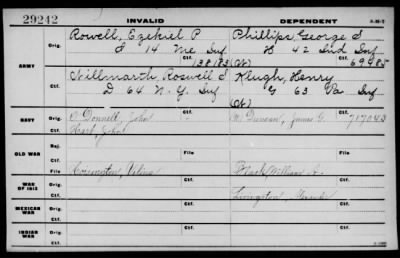 29242 INVALID DEPENDENT
Rowell, Ezekiel P Phillips, George S
Orig. I 14 Me Inf H 42 Ind Inf
ARMY
Ctf. 138183 (W) Ctf. 69485
Orig. Willmarth, Roswell S Klugh, Henry
D 64 N.Y. Inf G 63 Pa Inf
Ctf. (W)
NAVY Orig. O'Donnell, John Mc Duncan, James G. 717043
Ctf. Hart, John
OLD WAR Rej.
Ctf. File Ctf. File
WAR OF 1812 Orig. Covington, Vilina Black, William
Ctf. Livingston,
MEXICAN WAR Orig.
Ctf.
INDIAN WAR Orig.
Ctf.